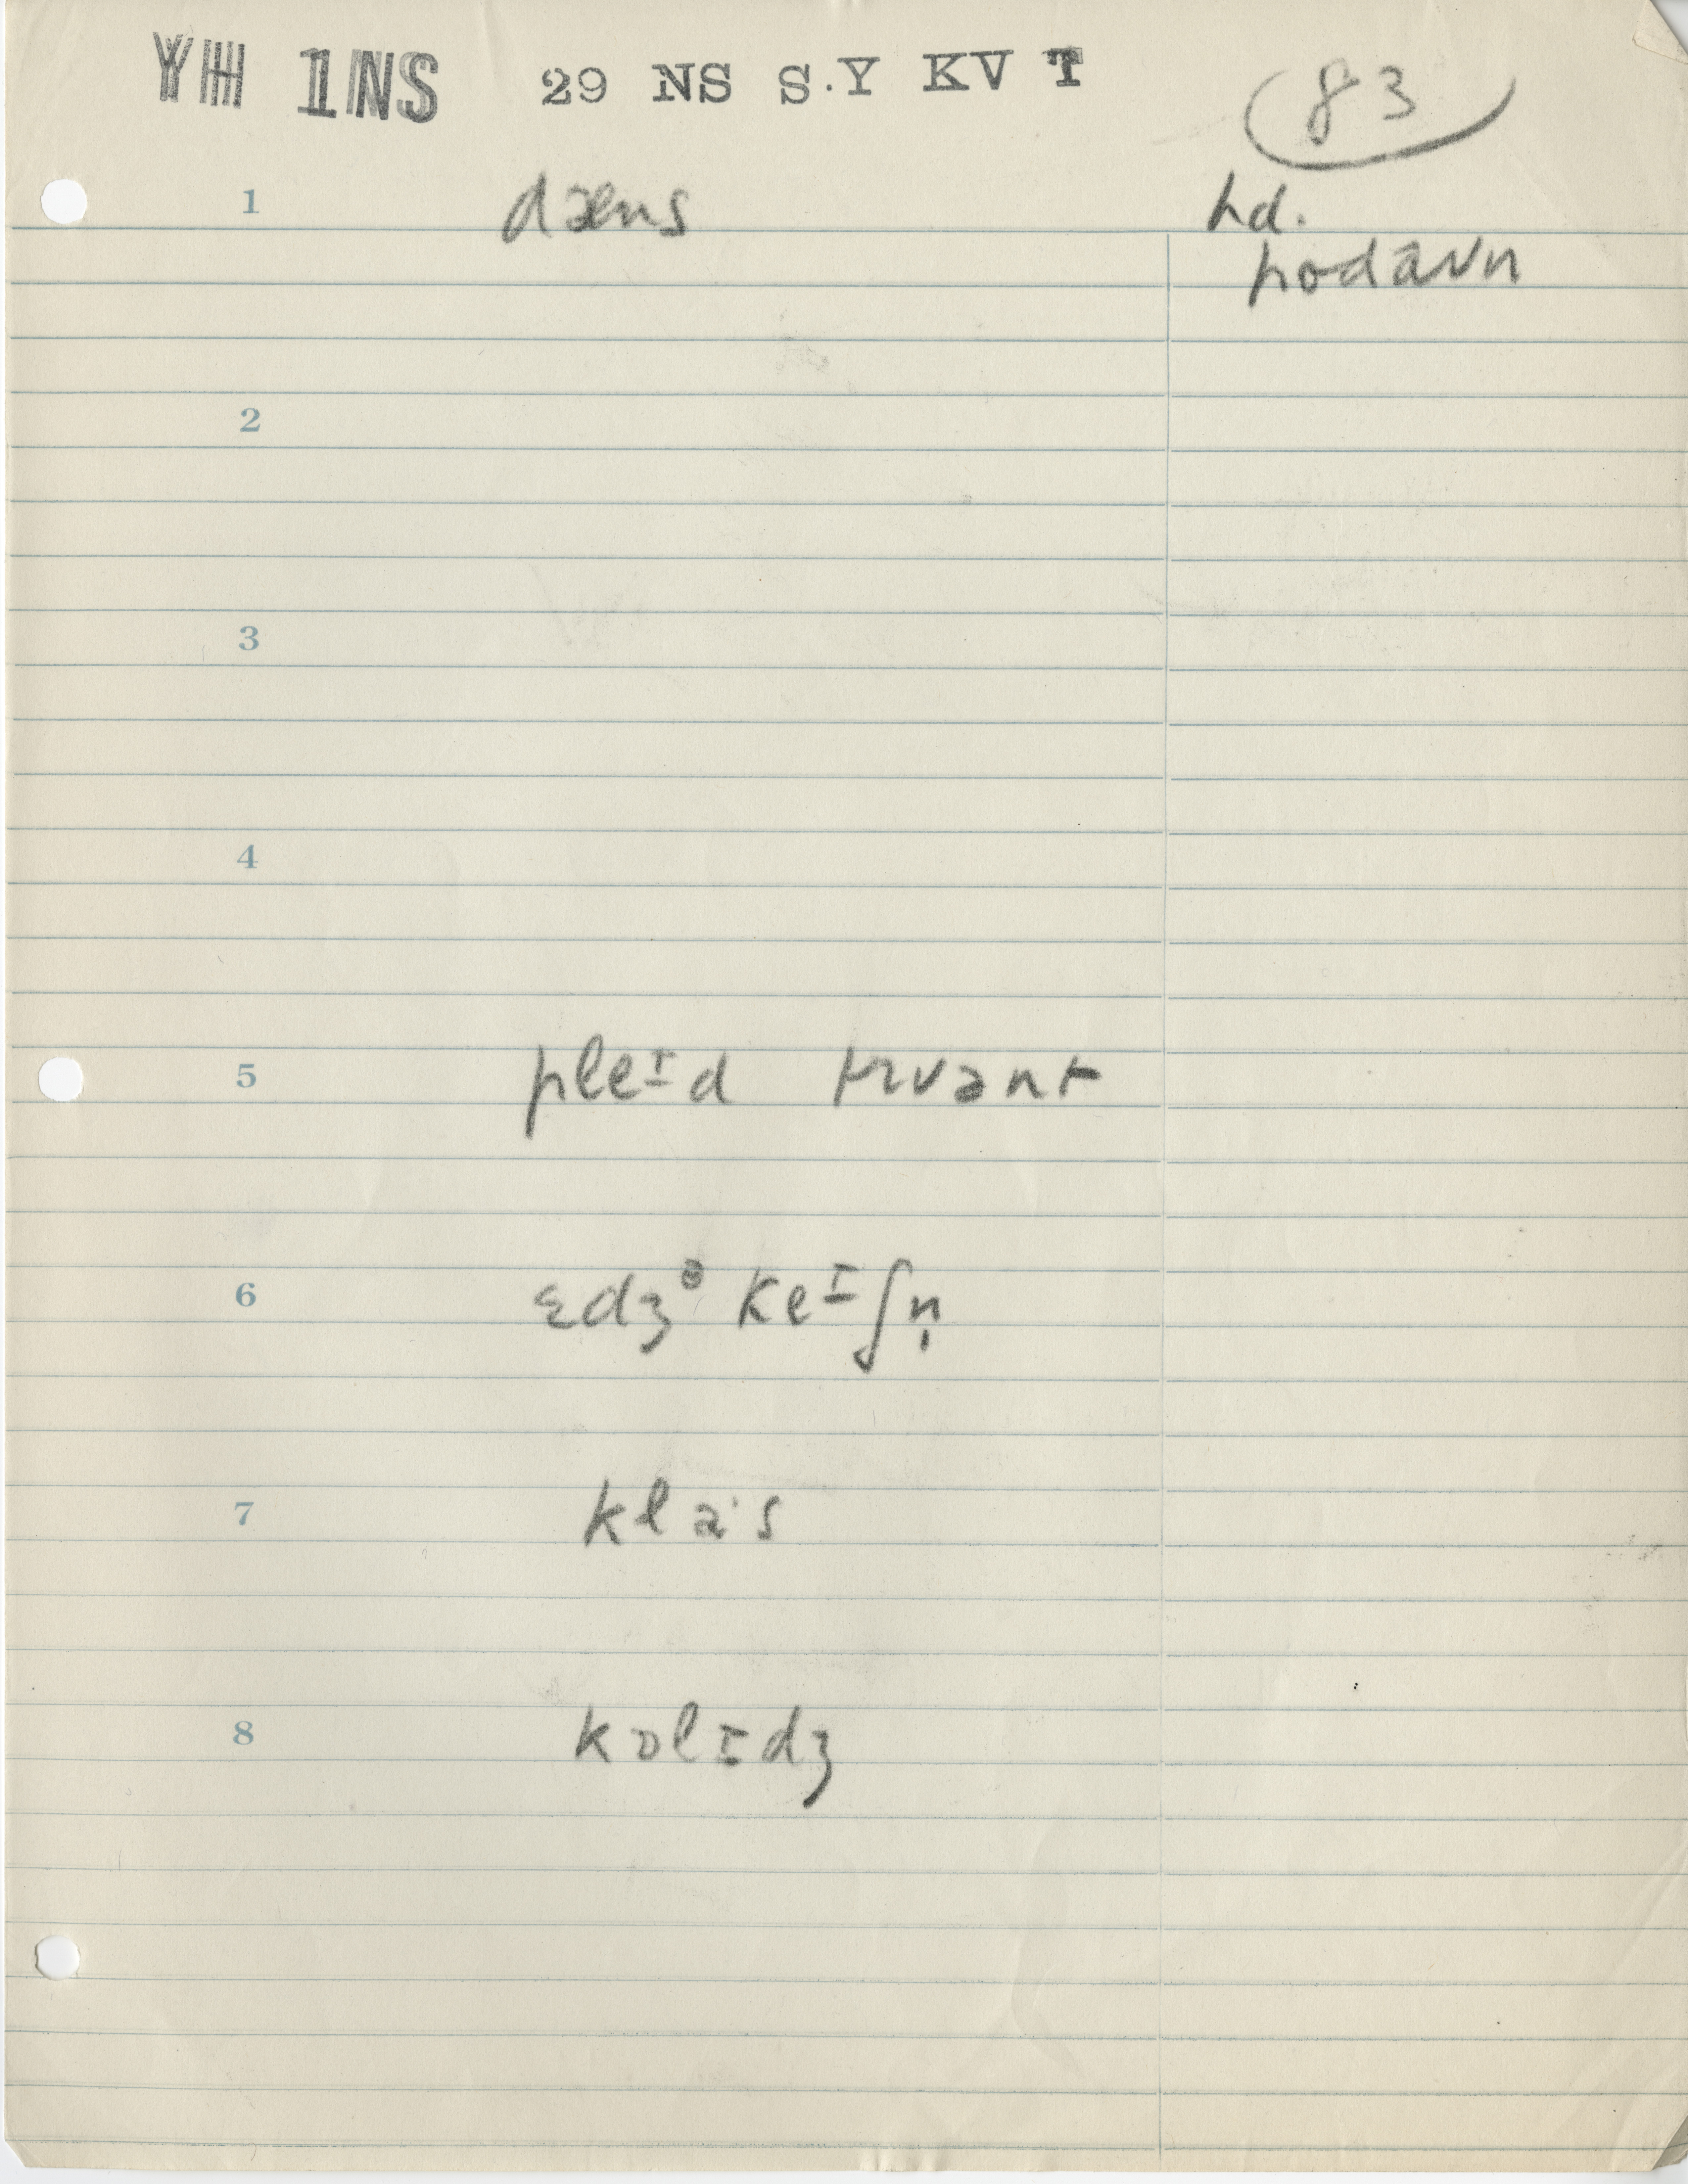 YH 1NS 29 NS S.Y KV T
83
1 dæns hd.
2
3
4
5 pleɪd
6 ɛdʒᵊkeɪʃn̩
7 klaˑs
8 kɒlɪdʒ